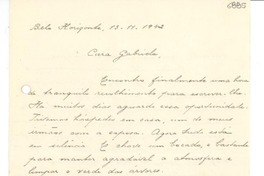 6885
Belo Horizonte, 13-11-1943
Cara Gabriela,
Encontro finalmente uma hora
de tranquilo recolhimento para escrever-lhe.
Ha muitos dias aguardo essa oportunidade.
Tivemos hospedes em casa, um de meus
irmãos com a esposa. Agora tudo está
em silencio. E chove um bocado, o bastante
para manter agradavel a atmosfera e
limpar o verde das arvores.